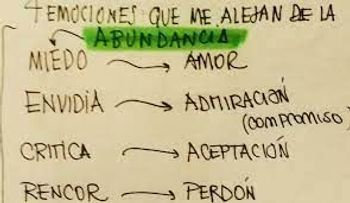 4 EMOCIONES QUE ME ALEJAN DE LA
ABUNDANCIA
MIEDO → AMOR
ENVIDIA → ADMIRACIÓN
(COMPROMISO)
CRITICA → ACEPTACIÓN
RENCOR → PERDÓN